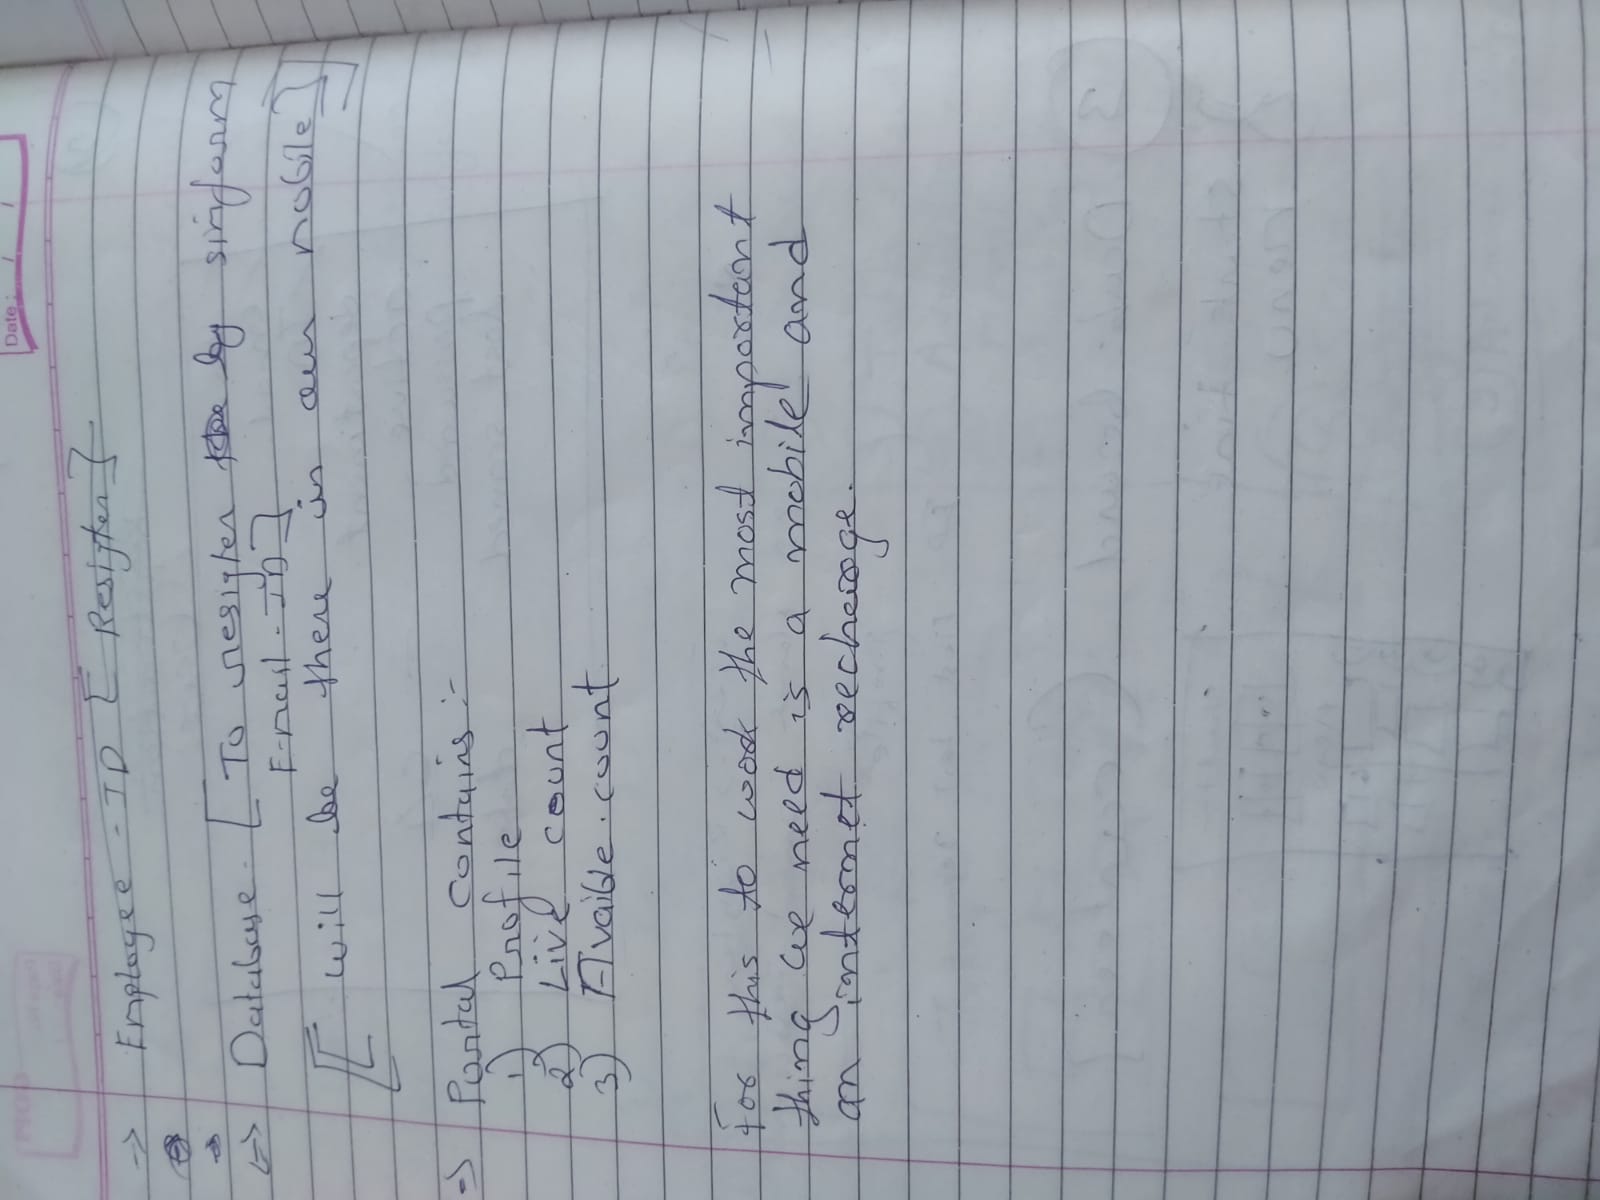 Date: / /
-> Employee - ID [ Resigter ]
=> Database. [ To resigter by sinform
E-mail - ID ]
[ will be there in our mobile ]
=> Portal contains :-
1) Profile
2) Live count
3) Avaible. count
For this to work the most important
thing we need is a mobile and
an internet recharge.